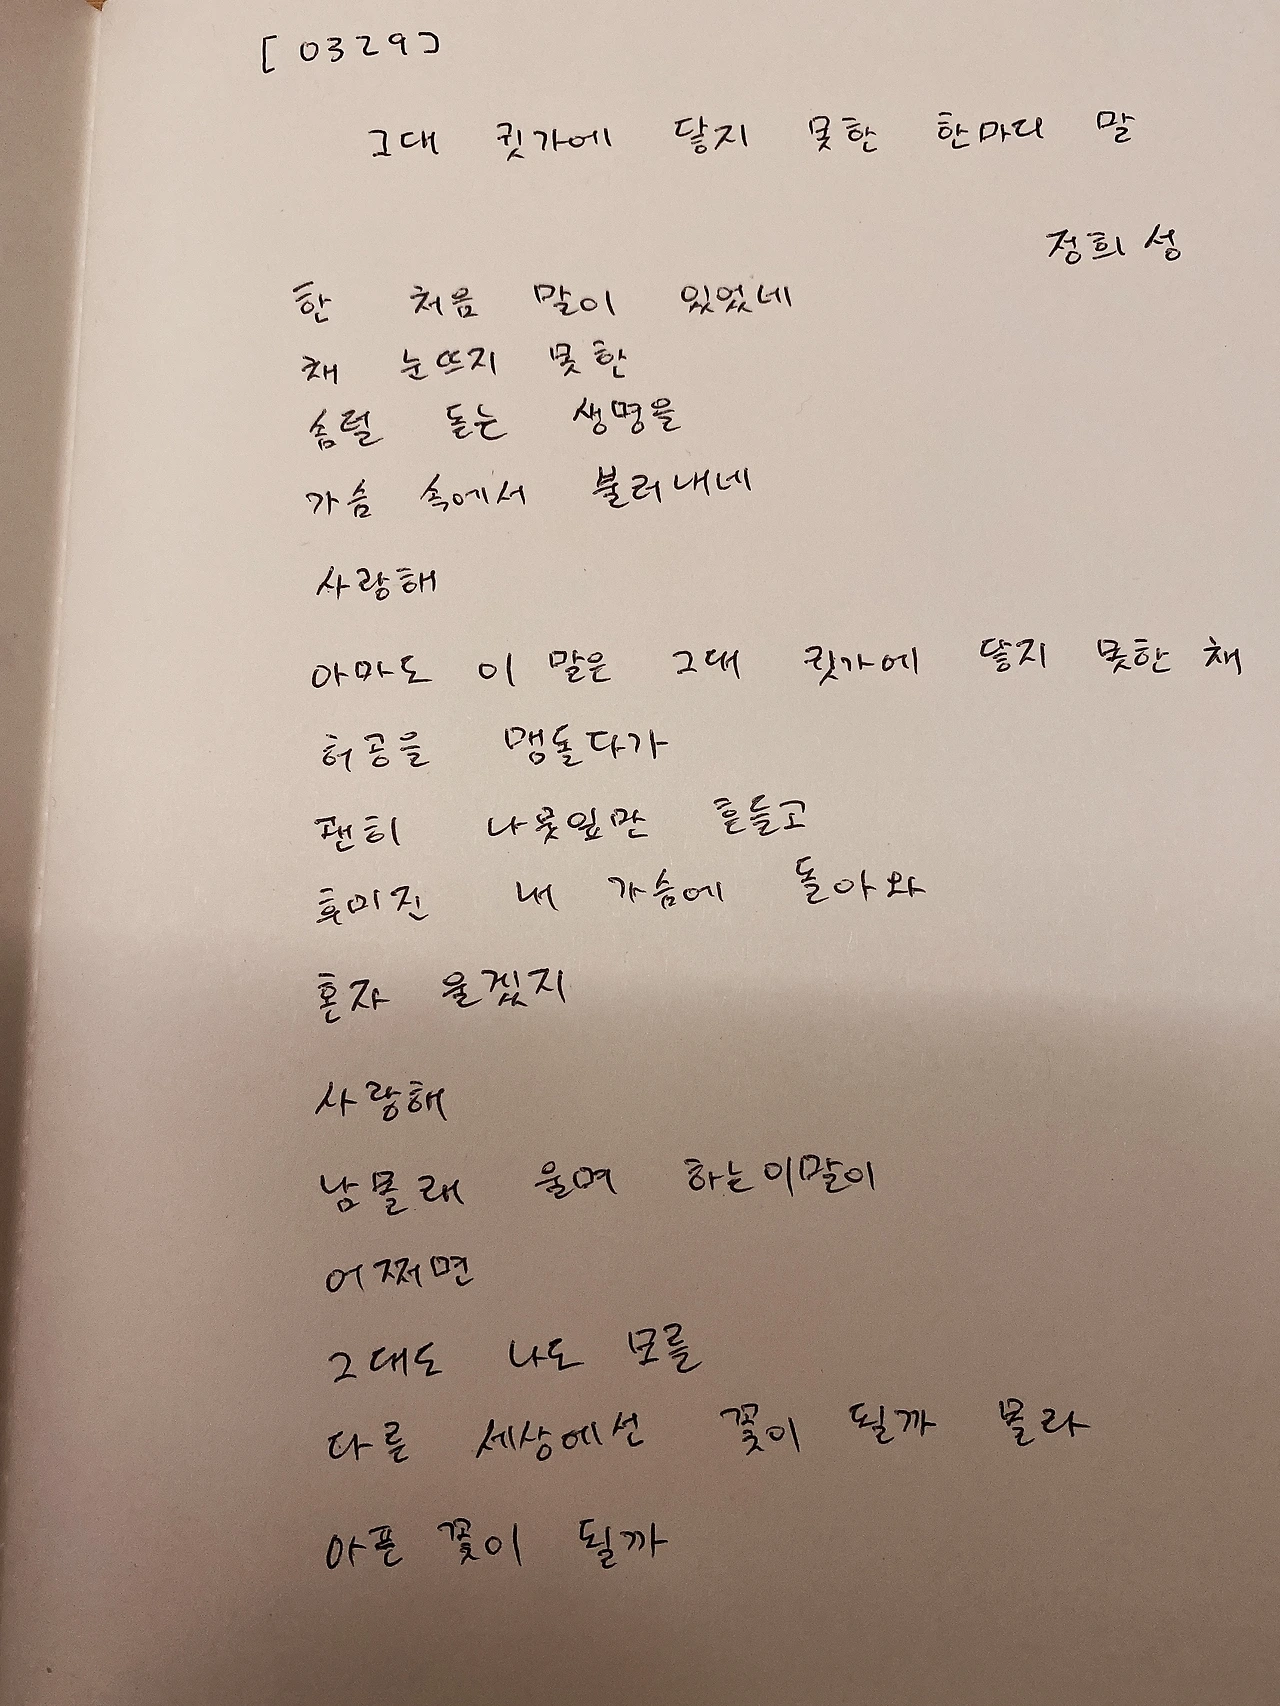 [0329]
그대 귓가에 닿지 못한 한마디 말
정희성
한 처음 말이 있었네
채 눈뜨지 못한
솜털 돋는 생명을
가슴 속에서 불러내네
사랑해
아마도 이 말은 그대 귓가에 닿지 못한 채
허공을 맴돌다가
괜히 나뭇잎만 흔들고
후미진 내 가슴에 돌아와
혼자 울겠지
사랑해
남몰래 울며 하는이말이
어쩌면
그대도 나도 모를
다른 세상에선 꽃이 될까 몰라
아픈 꽃이 될까